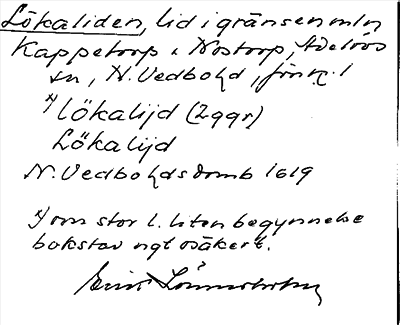 Lökaliden, lid i gränsen mln
Kappetorp o. Nostorp, Adelövs
sn, N. Vedbo hd, Jönk. l
x) lökalijd (2 ggr)
Lökalijd
N. Vedbo hds domb 1619
x) om stor l. liten begynnelse
bokstav ngt osäkert.